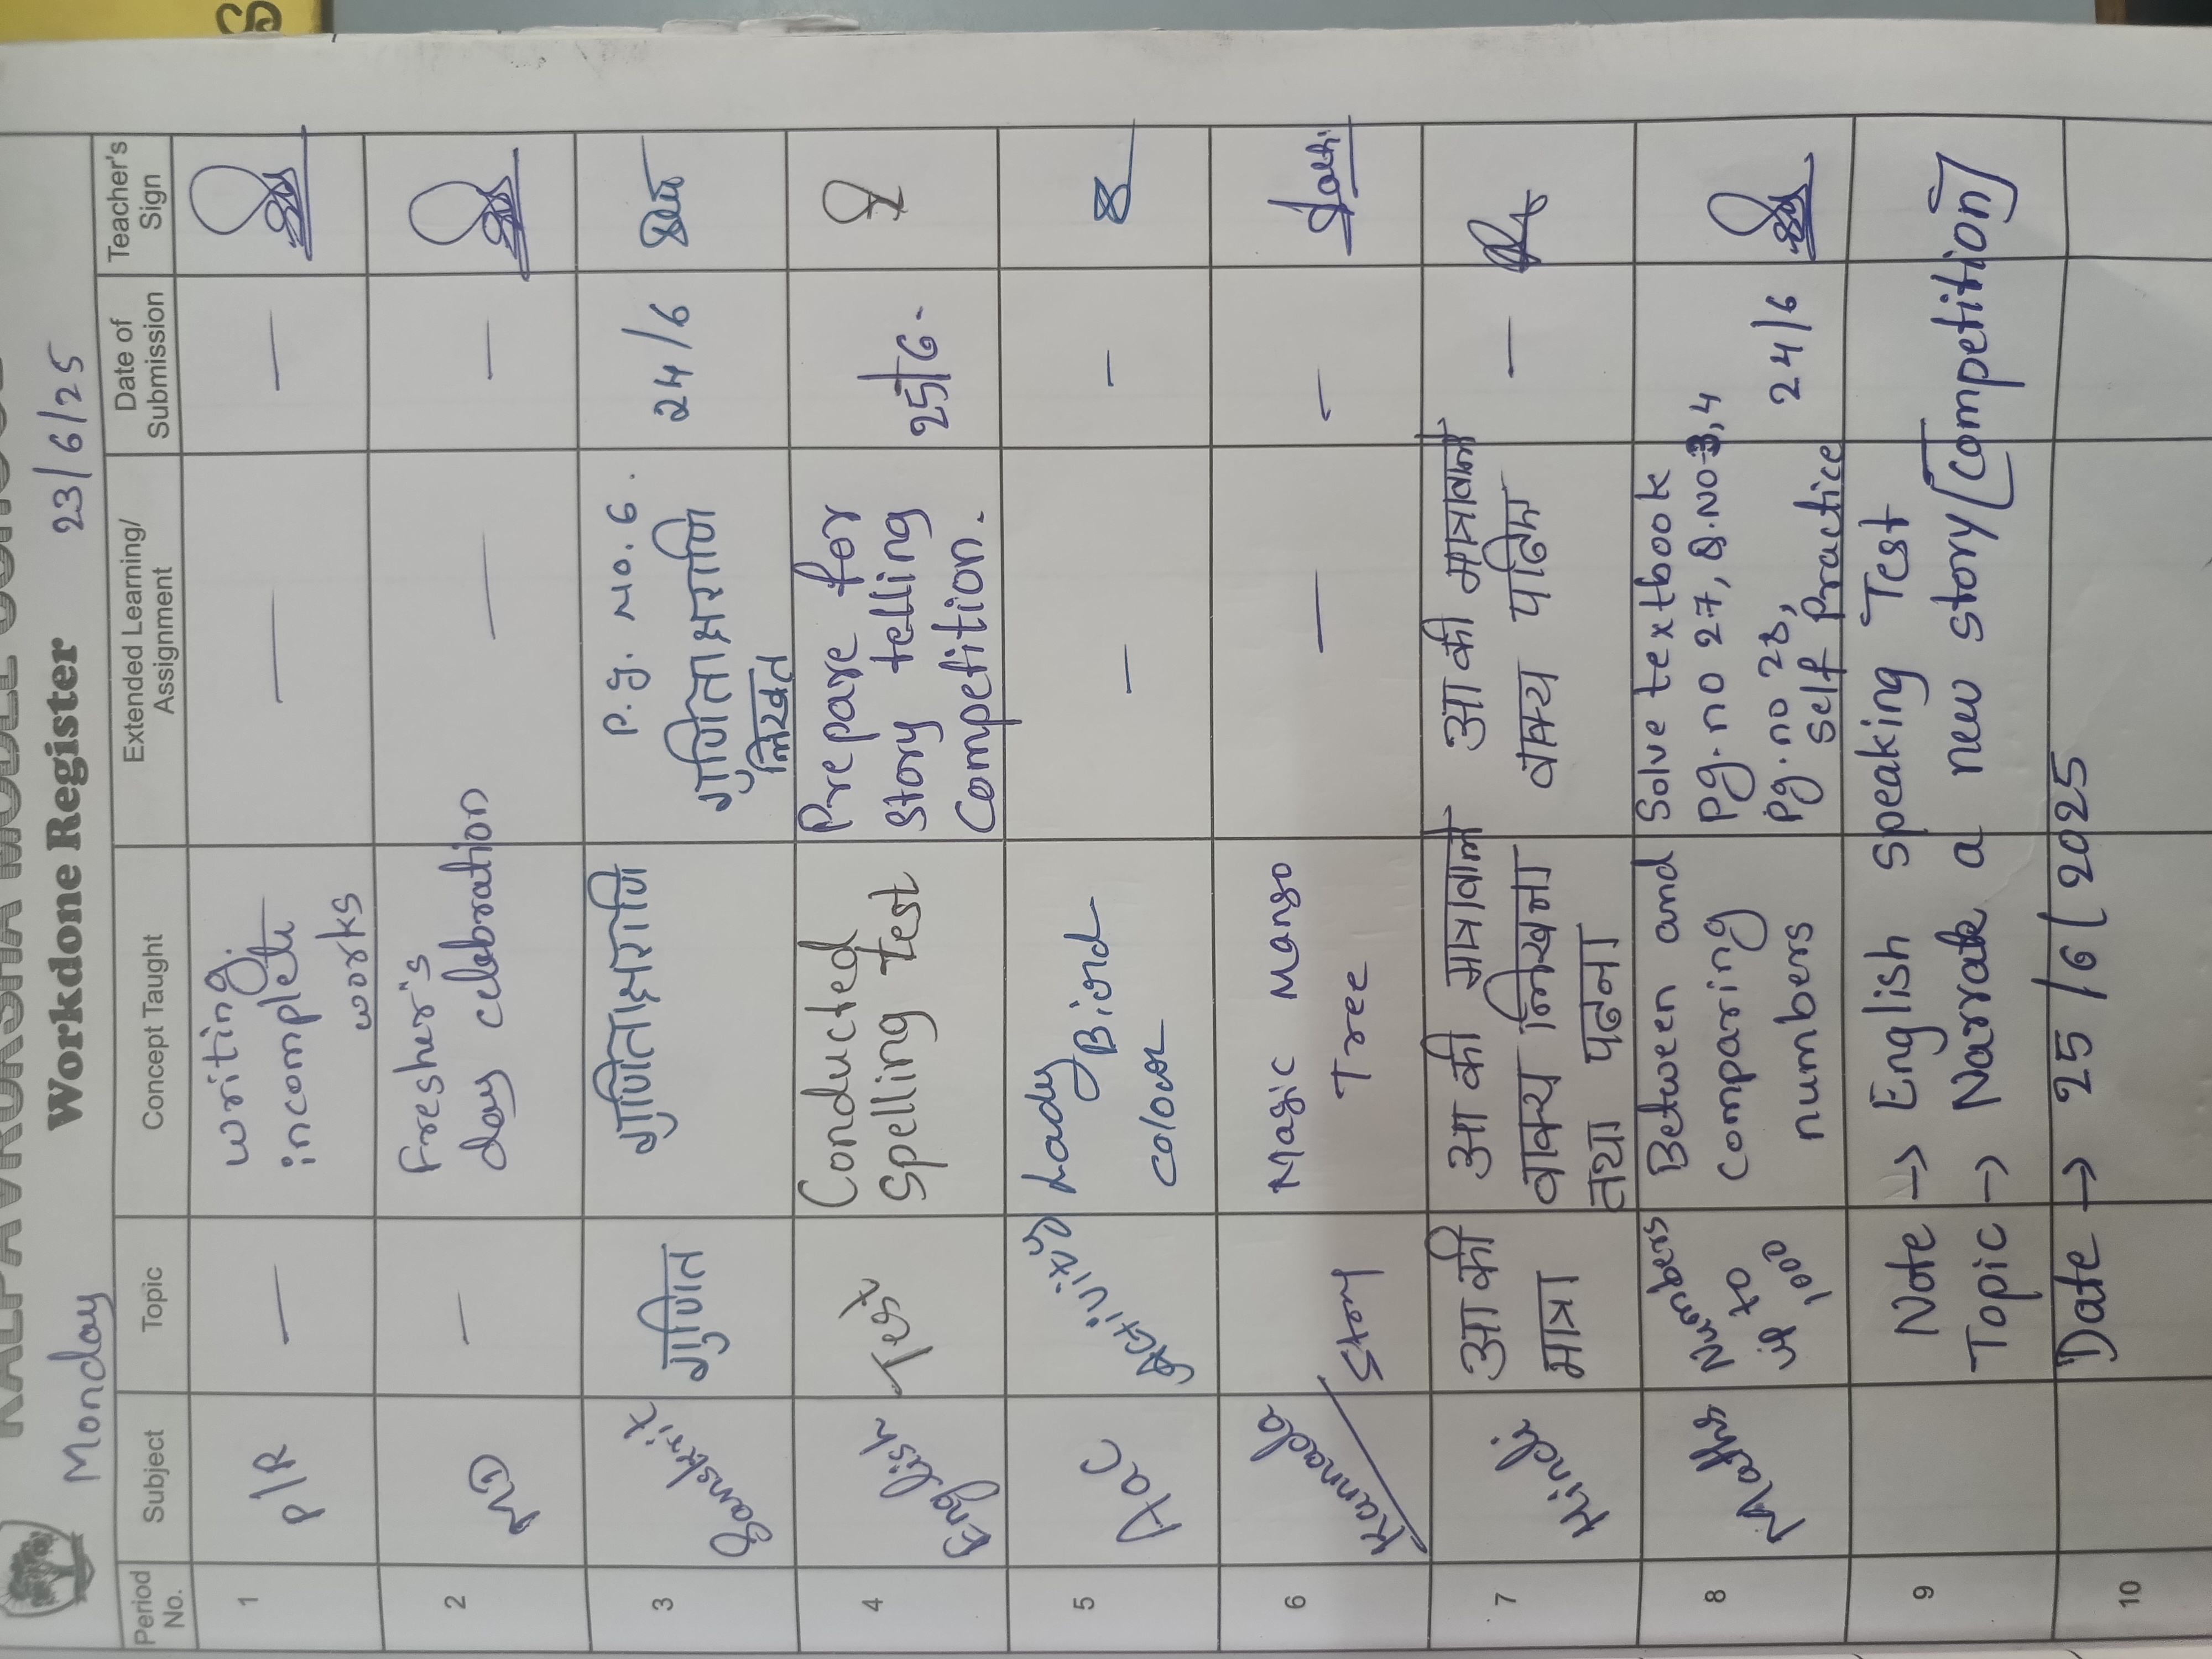 KALPAVRUKSHA MODEL SCHOOL
Monday Workdone Register 23/6/25
Period No. Subject Topic Concept Taught Extended Learning/ Assignment Date of Submission Teacher's Sign
1 P/R — writing incomplete works — —
2 MD — Fresher's day celebration — —
3 Sanskrit गुणित गुणिताक्षराणि P.g. No. 6. गुणिताक्षराणि लिखत 24/6
4 English Test Conducted Spelling test Prepare for story telling Competition. 25/6.
5 A&C Activity Lady Bird colour — —
6 Kannada Story Magic Mango Tree — —
7 Hindi आ की मात्रा आ की मात्रावाले वाक्य लिखना तथा पढ़ना आ की मात्रावाले वाक्य पढ़िए —
8 Maths Numbers up to 1000 Between and comparing numbers Solve textbook Pg.no 27, Q.NO-3,4 Pg.no 28, self Practice 24/6
9 Note → English Speaking Test
Topic → Narrate a new story [Competition]
Date → 25/6/2025
10